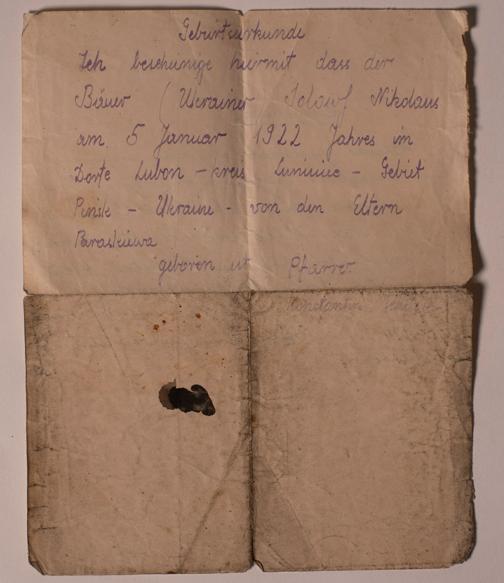 Geburtsurkunde
Ich bescheinige hiermit dass der
Bauer (Ukrainer Nikolaus
am 5 Januar 1922 Jahres im
Dorfe Lubon - kreis Luniniec - Gebiet
Pinsk - Ukraine - von den Eltern
Paraskiewa
geboren ist Pfarrer